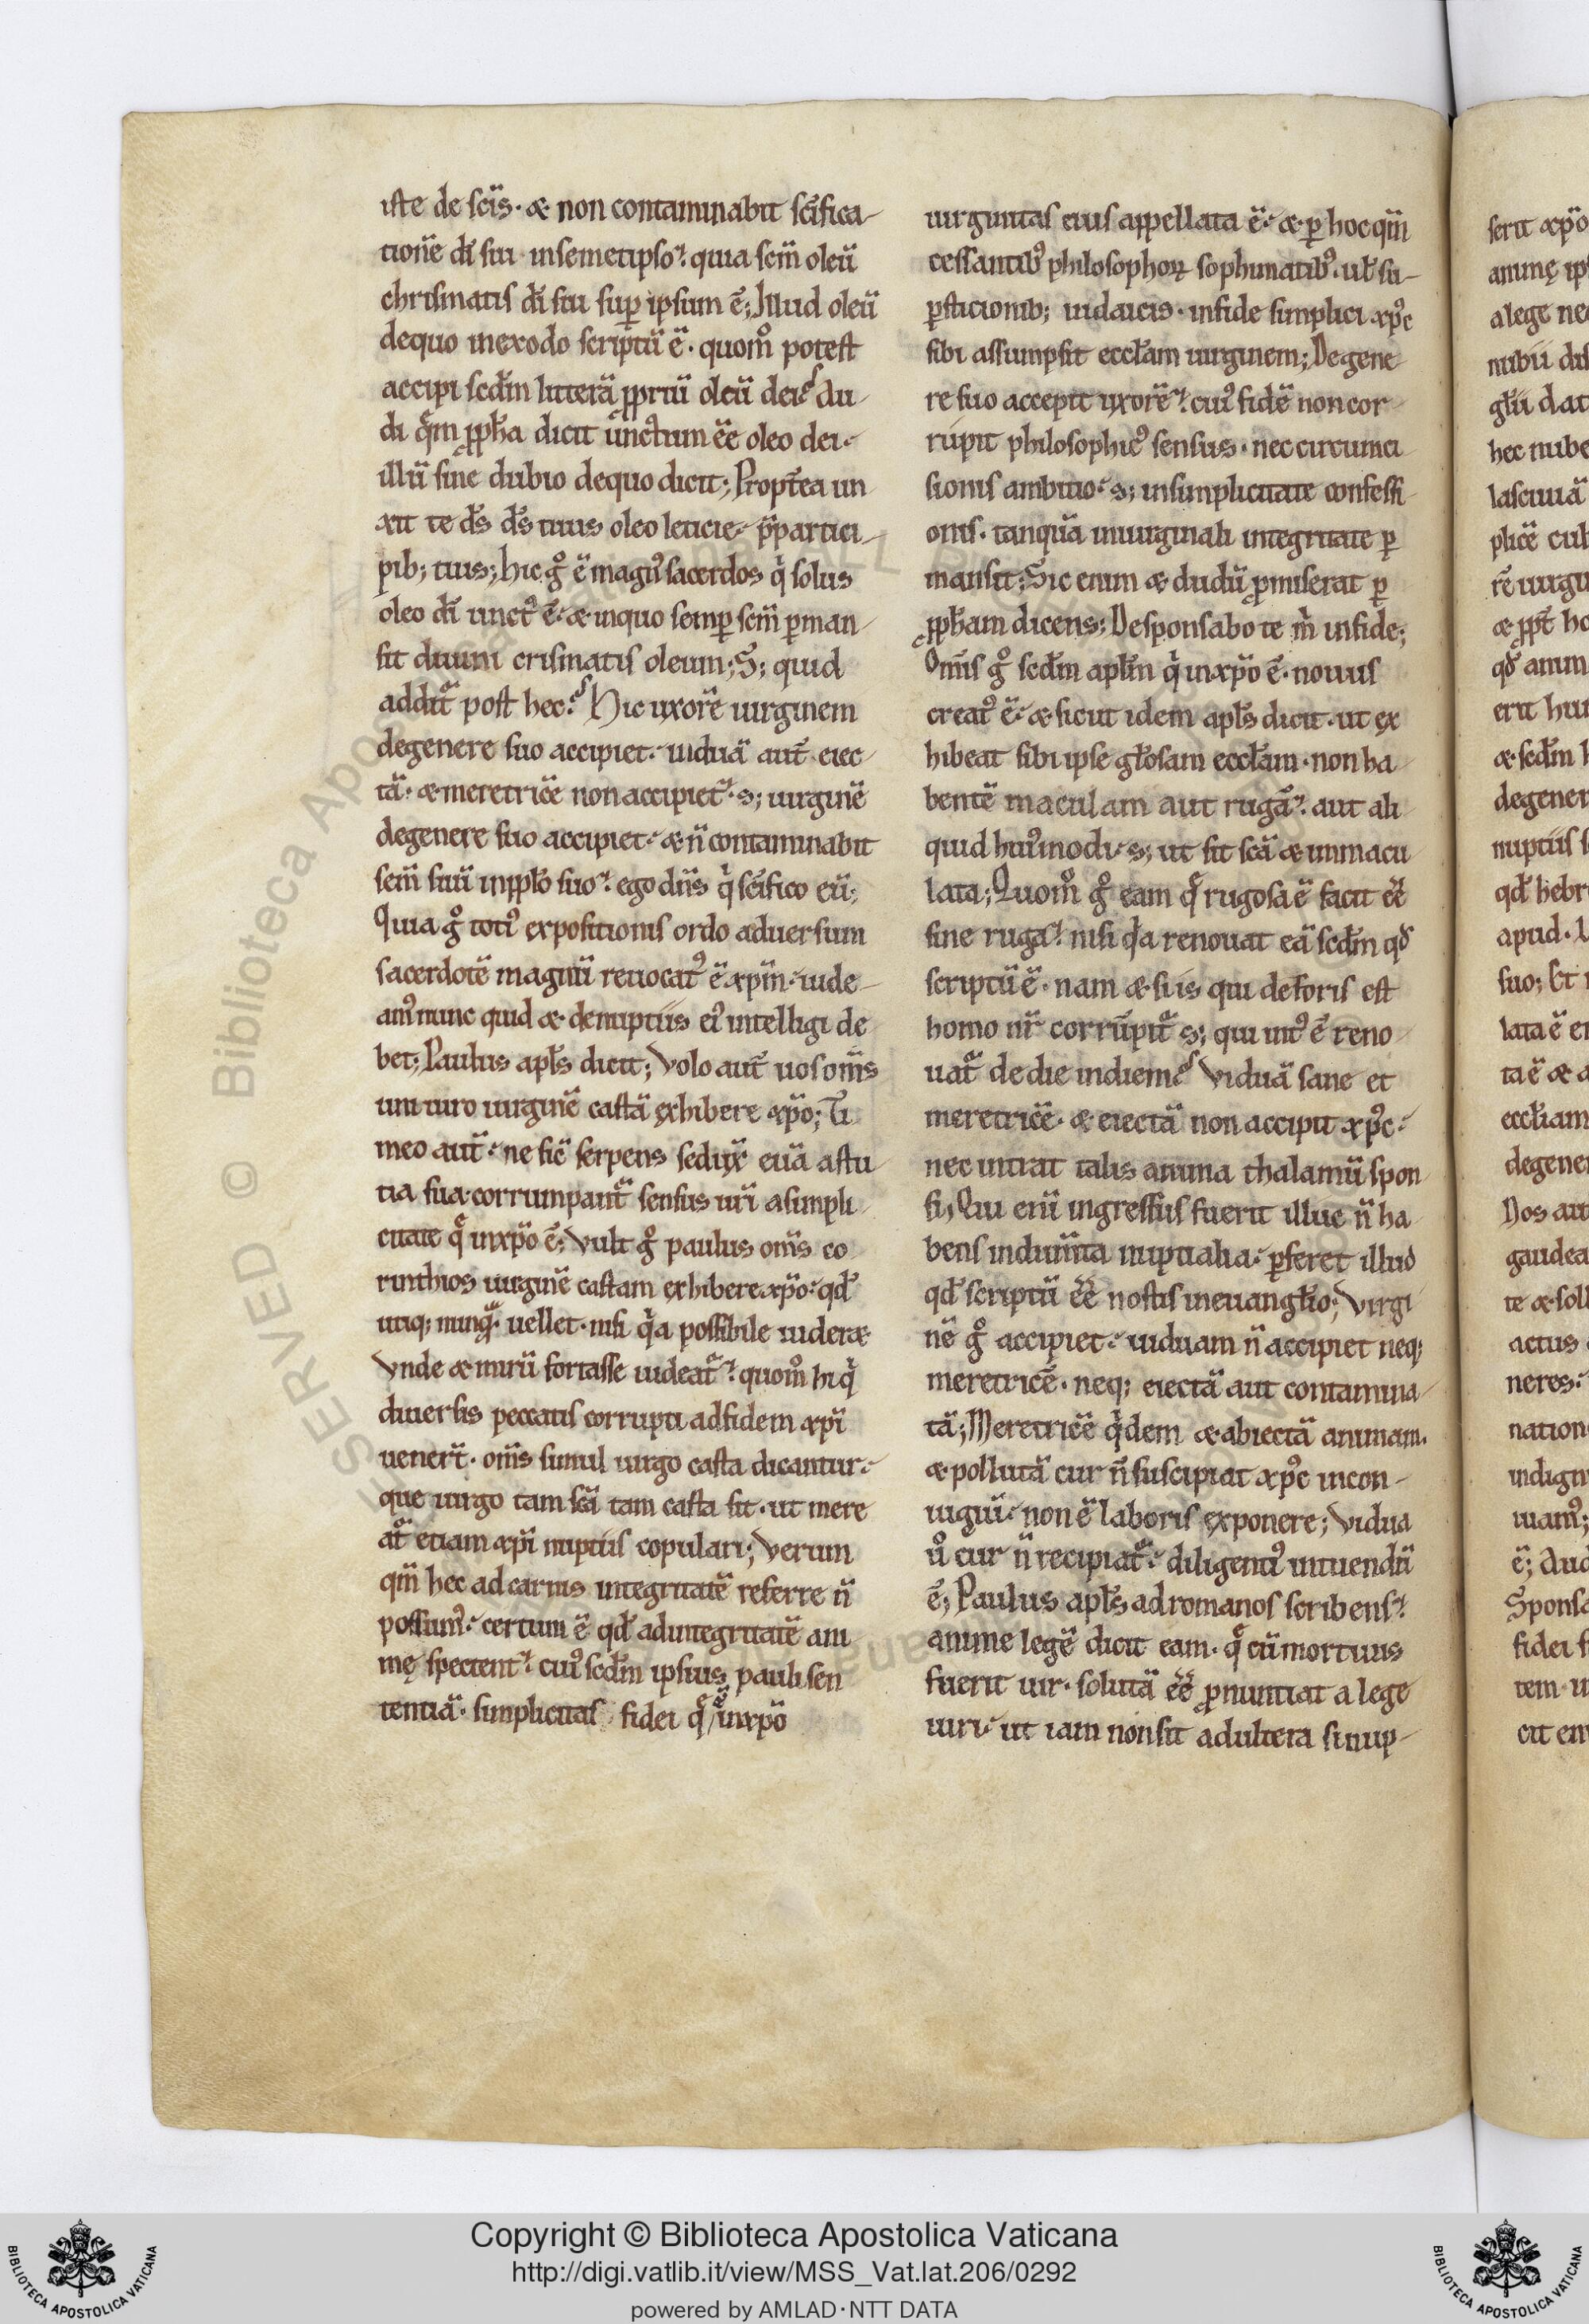 iste de scīs· & non contaminabit scīfica-
tionē dī sui insemetipso? quia scm̄ oleū
chrismatis dī sui sup̄ ipsum ē; Illud oleū
dequo inexodo scriptū ē· quom̊ potest
accipi scdm̄ litterā ꝓpriū oleū dei? au-
di qͣm ꝓph̄a dicit unctum ēē oleo dei·
illū sine dubio dequo dicit; Propt̄ea un
xit te ds̄ ds̄ tuus oleo leticie· p̄partici-
pib; tuis; hic g̊ ē magn᾽ sacerdos qͥ solus
oleo dī unct᾽ ē· & inquo semp̄ scm̄ p̄man-
sit diuini crismatis oleum; S; quid
addit᷑ post hec? Hic uxorē uirginem
degenere suo accipiet· uiduā aut̄ eiec-
tā· & meretricē non accipiet· s; uirginē
degenere suo accipiet· & n̄ contaminabit
sem̄ suū inpp̄lo suo? ego dn̄s qͥ scīfico eū;
Quia g̊ toti᾽ expositionis ordo aduersum
sacerdotē magnū reuocat᾽ ē xp̄m· uide-
am᾽ nunc quid & denuptiis ei᾽ intelligi de
bet; Paulus apl̄s dicit; Volo aut̄ uos om̄s
uni uiro uirginē castā exhibere xp̄o; Ti
meo aut̄· ne sic̄ serpens seduxͭ euā astu
tia sua· corrumpant᷑ sensus ur̄i asimpli-
citate qͤ inxp̄o ē; Vult g̊ paulus om̄s co
rinthios uirginē castam exhibere xp̄o· qd̄
utiq; nunqͣ· uellet· nisi qͥa possibile uider&
Vnde & mirū fortasse uideat᷑? quom̊ hi qͥ
diuersis peccatis corrupti adfidem xp̄i
uenert̄· om̄s simul uirgo casta dicantur·
que uirgo tam scā tam casta sit· ut mere
at᷑ etiam xp̄i nuptiis copulari; Verum
qm̄ hec ad carnis integritatē referre n̄
possum᾽· certum ē qd̄ adintegritatē ani
mę spectent? cui᾽ scdm̄ ipsius pauli sen
tentiā· simplicitas fidei qͤ inxp̄o
uirginitas eius appellata ē· & p̄ hoc qm̄
cessantib᾽ philosophoꝝ sophimatib᾽· ul̄ su-
p̄sticionib; iudaicis· infide simplici xp̄c
sibi assumpsit eccl̄am uirginem; Degene
re suo accepit uxorē? cui᾽ fidē non cor-
rūpit philosophic᾽ sensus· nec circumci
sionis ambitio· s; insimplicitate confessi-
onis· tanquā inuirginali integritate p̄
mansit; Sic enim & dudū ꝓmiserat p̄
ꝓph̄am dicens; Desponsabo te m̄ infide;
Om̄is g̊ scdm̄ apl̄m qͥ inxp̄o ē· nouus
creat᾽ ē· & sicut idem apl̄s dicit· ut ex
hibeat sibi ipse gl̄osam eccl̄am· non ha
bentē maculam aut rugā? aut ali
quid hui᾽modi· s; ut sit scā & inmacu
lata; Quom̊ g̊ eam qͤ rugosa ē facit ēē
sine ruga? nisi qͥa renouat eā scdm̄ qd̄
scriptū ē· nam & si is qui deforis est
homo nr̄ corrūpit᷑ s; qui int᾽ ē reno
uat᷑ de die indiem? Viduā sane et
meretricē· & eiectā non accipit xp̄c·
nec intrat talis anima thalamū spon
si; Qui enī ingressus fuerit illuc n̄ ha
bens indum̄ta nuptialia· p̄feret illud
qd̄ scriptū ēē nostis ineuangl̄io; Virgi
nē g̊ accipiet· uiduam n̄ accipiet neq;
meretricē· neq; eiectā aut contamina-
tā; Meretricē qͥdem & abiectā animam·
& pollutā cur n̄ suscipiat xp̄c incon-
iugiū· non ē laboris exponere; Vidua
ů cur n̄ recipiat᷑· diligenti᾽ intuendū
ē; Paulus apl̄s ad romanos scribens?
anime legē dicit eam· qͤ cū mortuus
fuerit uir· solutā ēē ꝓnuntiat a lege
uiri· ut iam non sit adultera si nup-
Copyright © Biblioteca Apostolica Vaticana
http://digi.vatlib.it/view/MSS_Vat.lat.206/0292
powered by AMLAD·NTT DATA